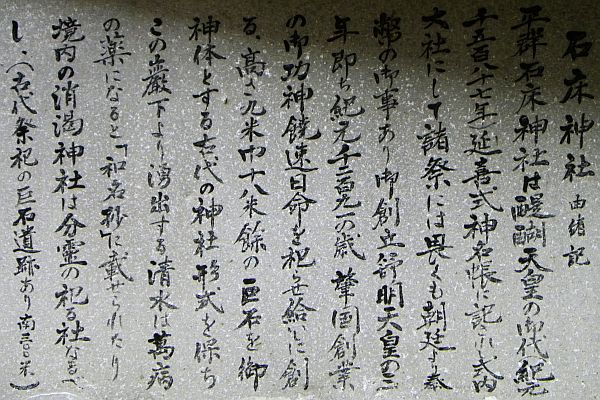 石床神社 由緒記
平群石床神社は醍醐天皇の御代紀元
千五百八十七年延喜式神名帳に記され式内
大社にして諸祭には畏くも朝廷より奉
幣の御事あり御創立舒明天皇の三
年即ち紀元千二百九一の歳 肇国創業
の御功神饒速日命を祀せ給いしに創
る、高さ九米巾十八米餘の巨石を御
神体とする古代の神社形式を保ち
この巌下より湧出する清水は萬病
の薬になると「和名抄」に載せられたり
境内の消渇神社は分霊の祀る社なるべ
し、(古代祭祀の巨石遺跡あり南三〇〇米)